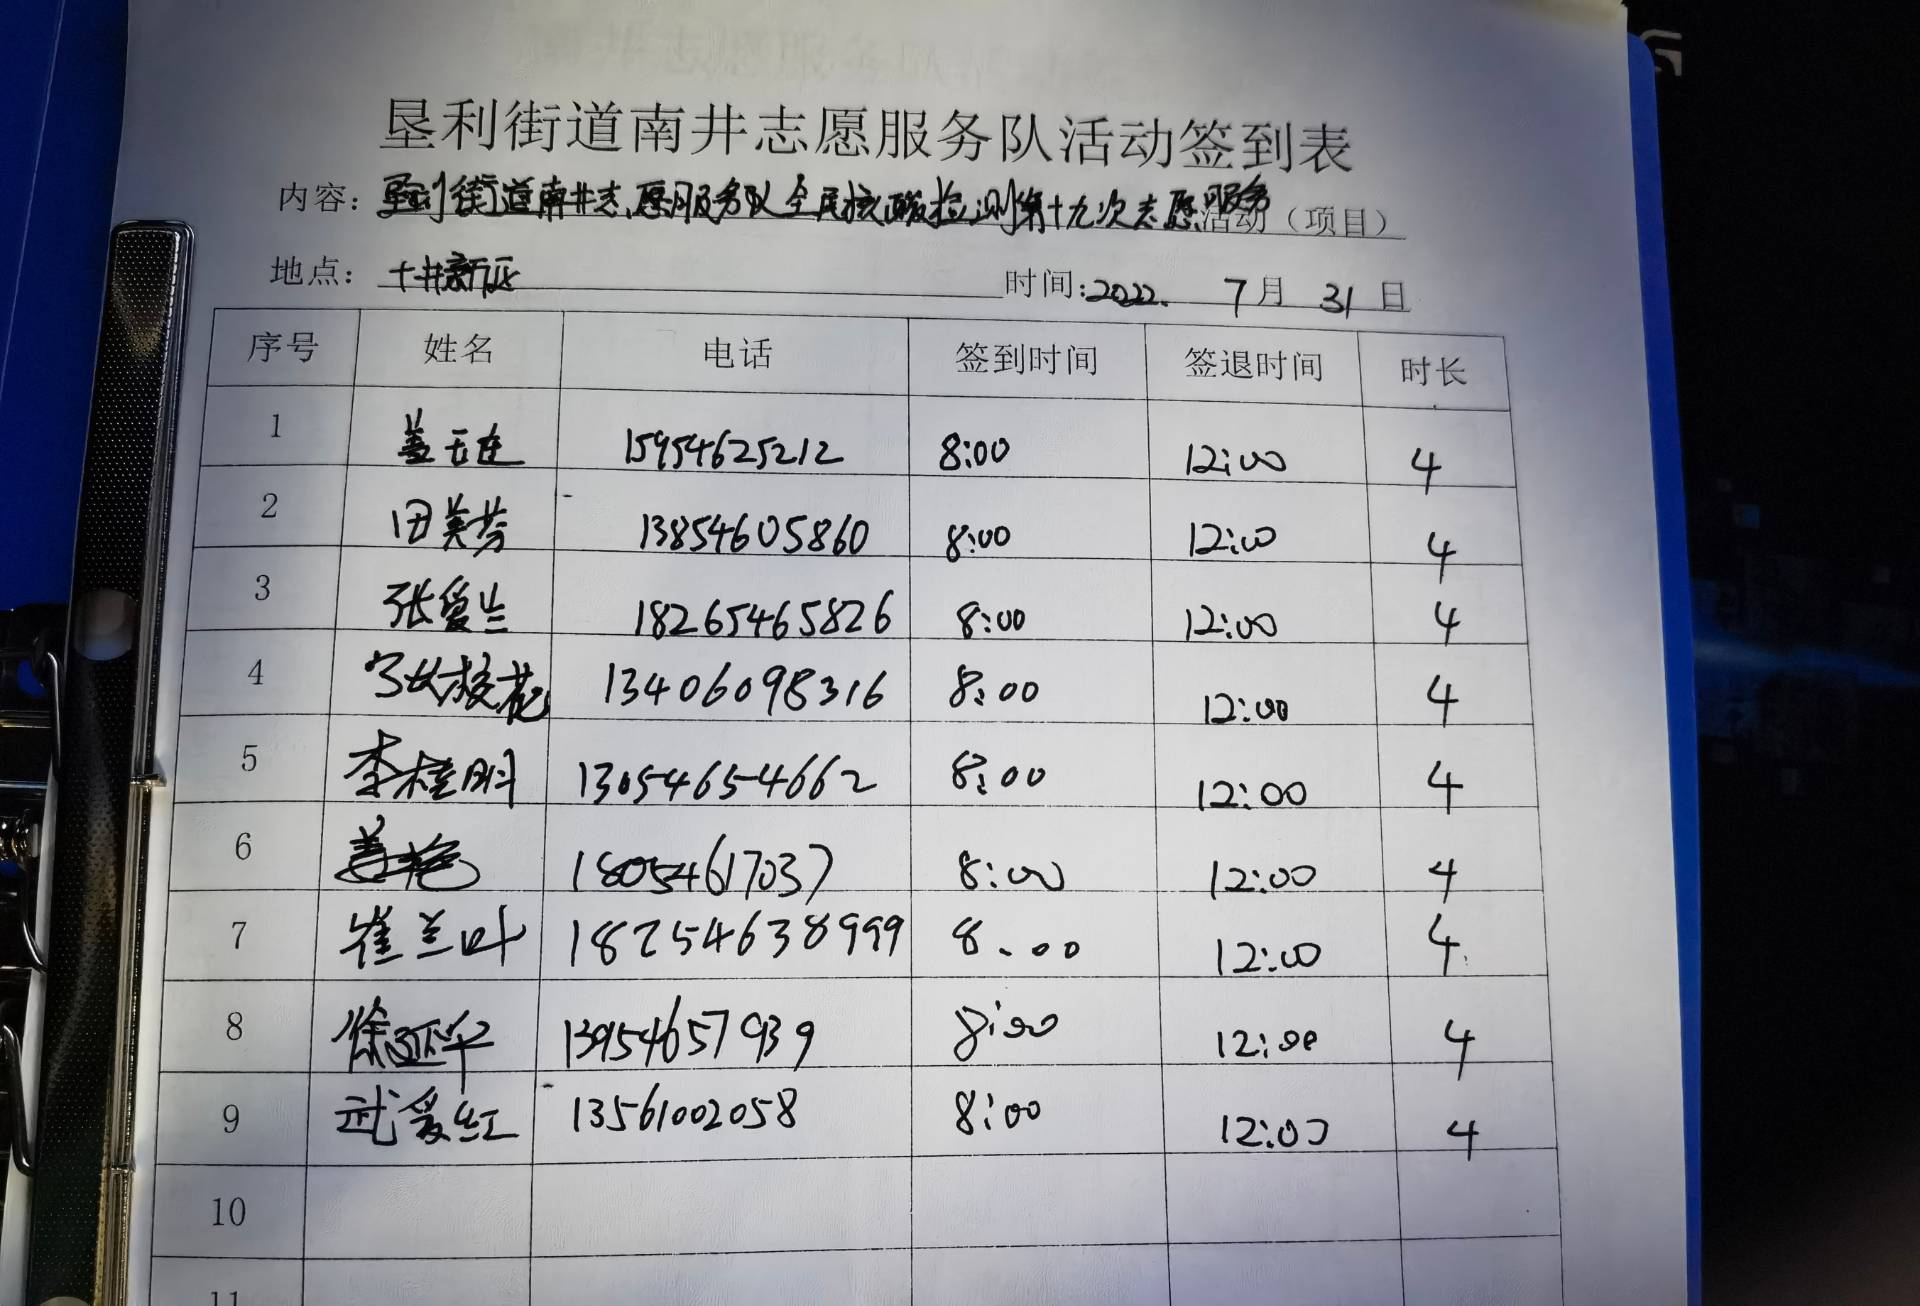 垦利街道南井志愿服务队活动签到表
内容：垦利街道南井志愿服务队全民核酸检测第十九次志愿服务活动（项目）
地点：十井新区 时间：2022. 7月 31日
序号 姓名 电话 签到时间 签退时间 时长
1 盖玉连 15954625212 8:00 12:00 4
2 田美芬 13854605860 8:00 12:00 4
3 张爱兰 18265465826 8:00 12:00 4
4 13406098316 8:00 12:00 4
5 李桂明 13054654662 8:00 12:00 4
6 姜艳 18054617037 8:00 12:00 4
7 崔兰叶 18254638999 8.00 12:00 4
8 徐延华 13954657939 8:00 12:00 4
9 武爱红 13561002058 8:00 12:00 4
10
11